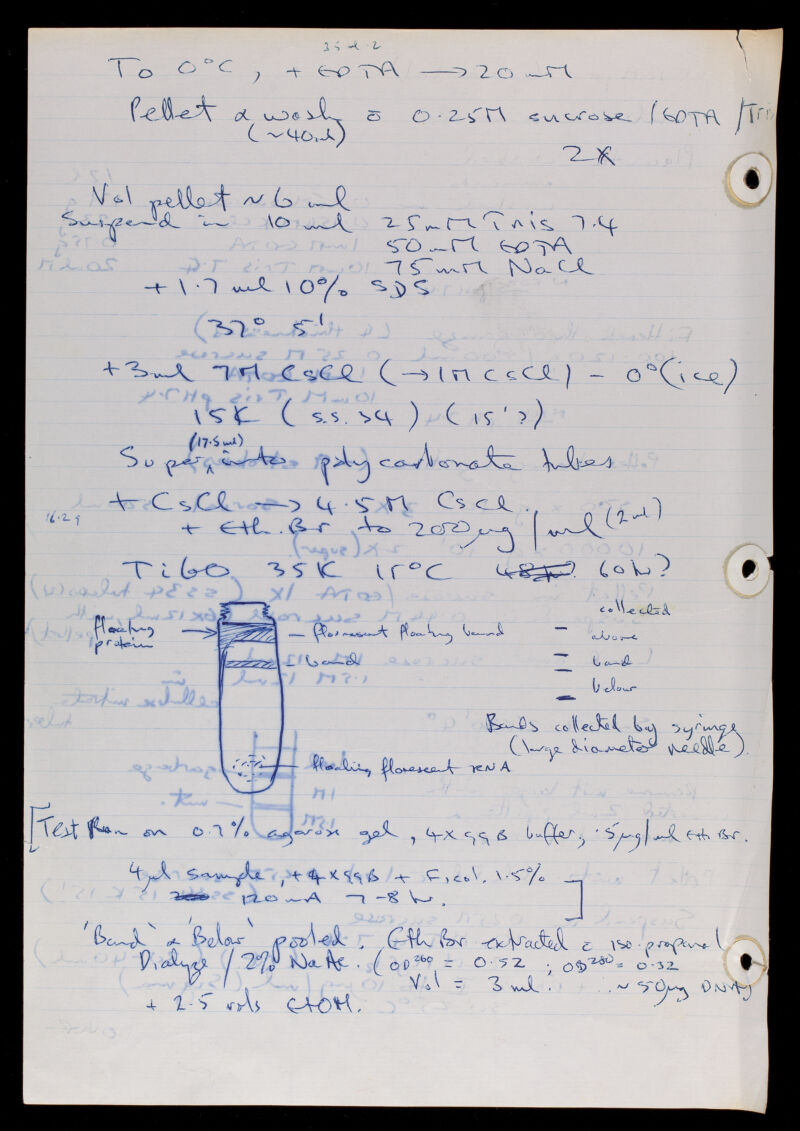 To 0°C, + EDTA → 20 mM
Pellet & wash c̄ 0.25M sucrose / EDTA / Tris
(~40ml)
2x
Vol pellet ~ 6 ml
Suspend in 10 ml 25mM Tris 7.4
50 mM EDTA
75 mM NaCl
+ 1.7 ml 10% SDS
(37° 5'
+ 3ml 7M CsCl (→ 1M CsCl) – 0° (ice)
15K (S.S. 34) (15'?)
(17.5 ml)
Super into polycarbonate tubes
+ CsCl → 4.5M CsCl.
16.2g
+ Eth. Br to 200µg/ml (2ml)
Ti60 35K 15°C 48hr? 60hr?
floating protein
– florescent floating band
band
floating florescent RNA
collected
– above
= band
– below
Bands collected by syringe
(large diameter needle).
[Test Run on 0.7% agarose gel, 4x99B buffer, .5µg/ml Eth Br.
4µl sample, + 4x99B + Ficol. 1.5%
120mA 7-8 hr. ]
'Band' & 'Below' pooled. Eth Br extracted c̄ iso-propanol
Dialyze / 2% NaAc. (OD²⁶⁰ = 0.52 ; OD²⁸⁰ = 0.32
Vol = 3 ml. ... ~ 50µg DNA)
+ 2.5 vols EtOH.